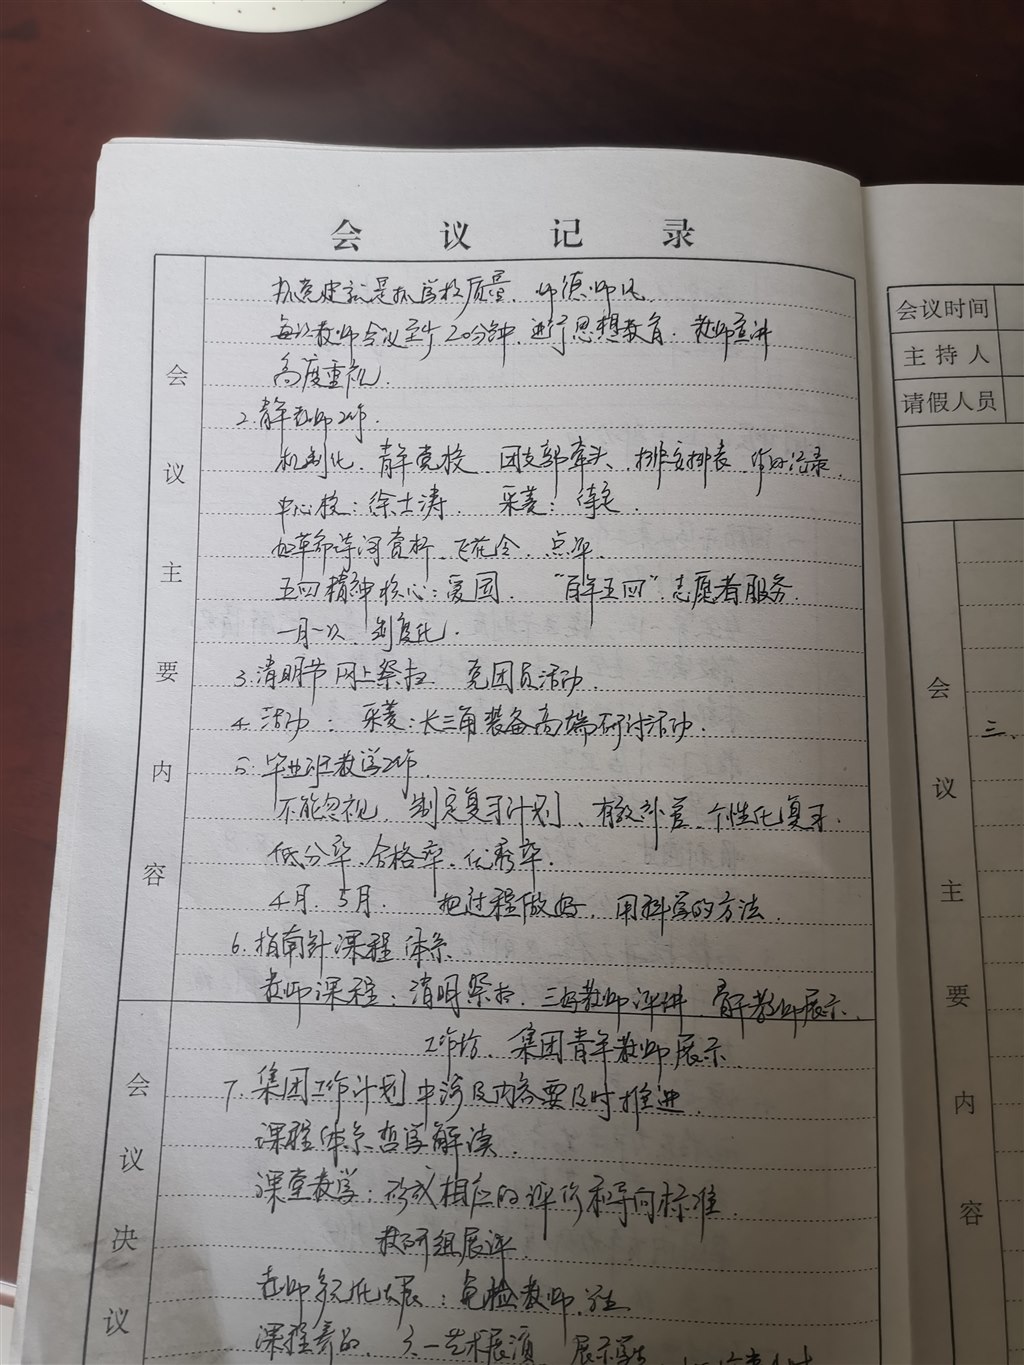 会议记录
会议主要内容
抓党建就是抓学校质量、师德师风
每次教师会议至少20分钟,进行思想教育.教师宣讲
高度重视.
2.青年教师工作.
机制化、青年党校 团支部牵头、排定安排表、作好记录.
中心校:徐士涛. 采菱:
如革命诗词赏析、飞花令、点评.
五四精神核心:爱国. "百年五四".志愿者服务.
一月一次、制度化.
3.清明节网上祭扫 党团员活动.
4.活动: 采菱:长三角装备高端研讨活动.
5.毕业班教学工作.
不能忽视、制定复习计划、有效补差、个性化复习.
低分率、合格率、优秀率.
4月、5月. 把过程做好、用科学的方法.
6.指南针课程体系
教师课程:清明祭扫、三好教师评讲、青年教师展示、
工作坊、集团青年教师展示
会议决议
7.集团工作计划中涉及内容要及时推进.
课程体系哲学解读.
课堂教学:形成相应的评价和导向标准.
教研组展评.
教师多元化发展:免检教师.
课程 六一艺术展演 展示学生
会议时间
主持人
请假人员
会议主要内容
三、